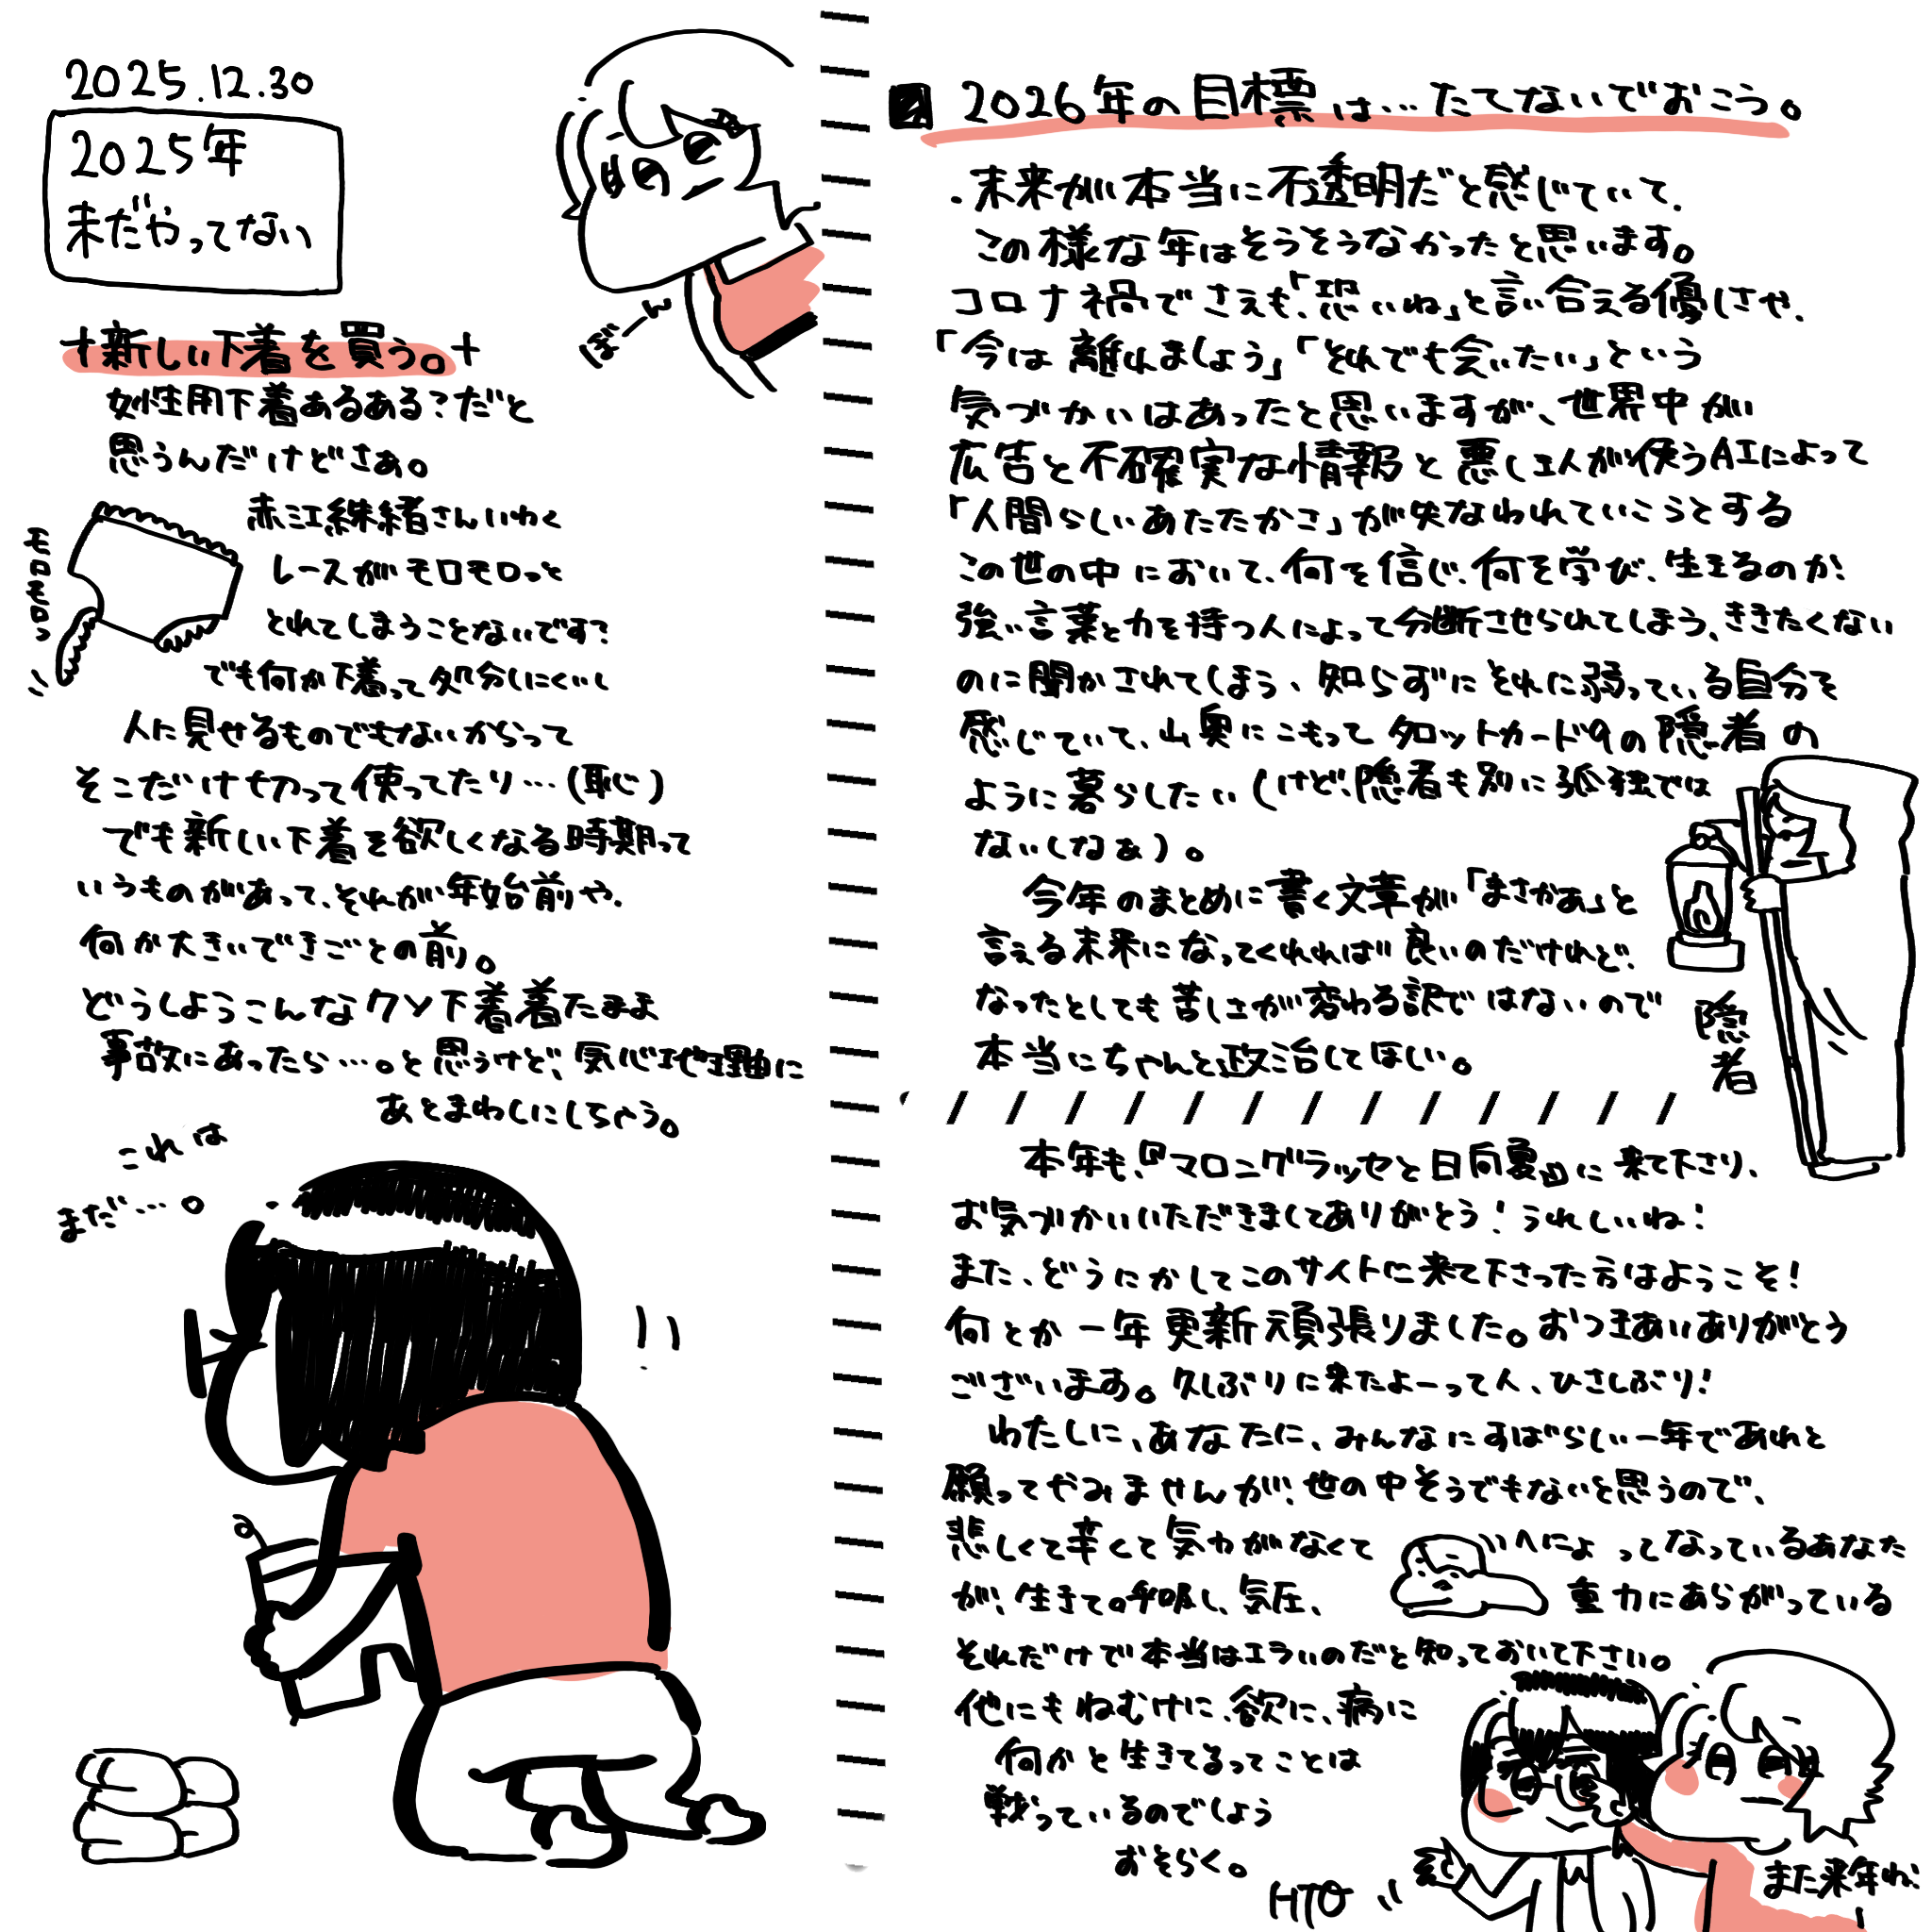 2025.12.30
2025年
未だやってない
ぼーん
+新しい下着を買う。+
女性用下着あるある?だと
思うんだけどさぁ。
赤江珠緒さんいわく
レースがモロモロっと
とれてしまうことないです?
モロモロっ
でも何か下着って処分しにくいし
人に見せるものでもないからって
そこだけ切って使ってたり…(恥)
でも新しい下着を欲しくなる時期って
いうものがあって、それが年始前や、
何か大きいできごとの前。
どうしようこんなクソ下着着たまま
事故にあったら…。と思うけど、気心地理由に
あとまわしにしちゃう。
これは
まだ…。
2026年の目標は…たてないでおこう。
・未来が本当に不透明だと感じていて、
この様な年はそうそうなかったと思います。
コロナ禍でさえも、「恐いね」と言い合える優しさや、
「今は離れましょう」「それでも会いたい」という
気づかいはあったと思いますが、世界中が
広告と不確実な情報と悪い人が使うAIによって
「人間らしいあたたかさ」が失なわれていこうとする
この世の中において、何を信じ、何を学び、生きるのか、
強い言葉と力を持つ人によって分断させられてしまう、ききたくない
のに聞かされてしまう、知らずにそれに弱っている自分を
感じていて、山奥にこもってタロットカード9の隠者の
ように暮らしたい(けど、隠者も別に孤独では
ないしなぁ)。
今年のまとめに書く文章が「まさかぁ」と
言える未来になってくれれば良いのだけれど、
なったとしても苦しさが変わる訳ではないので
本当にちゃんと政治してほしい。
隠者
本年も、『マロニグラッセと日向夏』に来て下さり、
お気づかいいただきましてありがとう!うれしいね!
また、どうにかしてこのサイトに来て下さった方はようこそ!
何とか一年更新頑張りました。おつきあいありがとう
ございます。久しぶりに来たよーって人、ひさしぶり!
わたしに、あなたに、みんなにすばらしい一年であれと
願ってやみませんが、世の中そうでもないと思うので、
悲しくて辛くて気力がなくて へにょってなっているあなた
が、生きて。呼吸し、気圧、重力にあらがっている
それだけで本当はエラいのだと知っておいて下さい。
他にもねむけに、欲に、病に
何かと生きてるってことは
戦っているのでしょう
おそらく。
HTO
また来年ね!